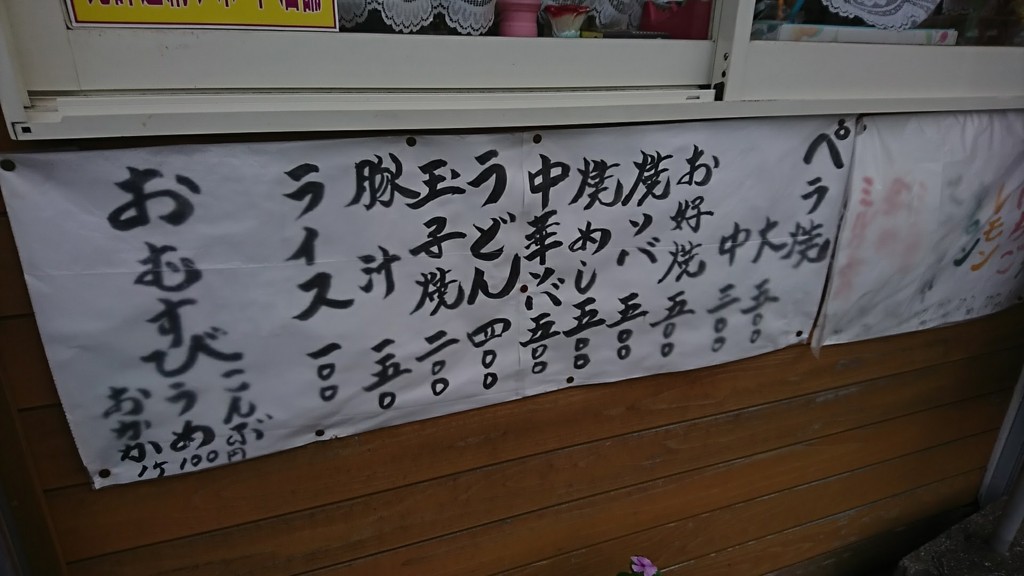 ペラ焼
大 五〇〇
中 三〇〇
お好焼 五〇〇
焼ソバ 五〇〇
焼めし 五〇〇
中華ソバ 五〇〇
うどん 四〇〇
玉子焼 二〇〇
豚汁 一五〇
ライス 一〇〇
おむすび
こんぶ
うめ
おかか
1ケ100円
レモン